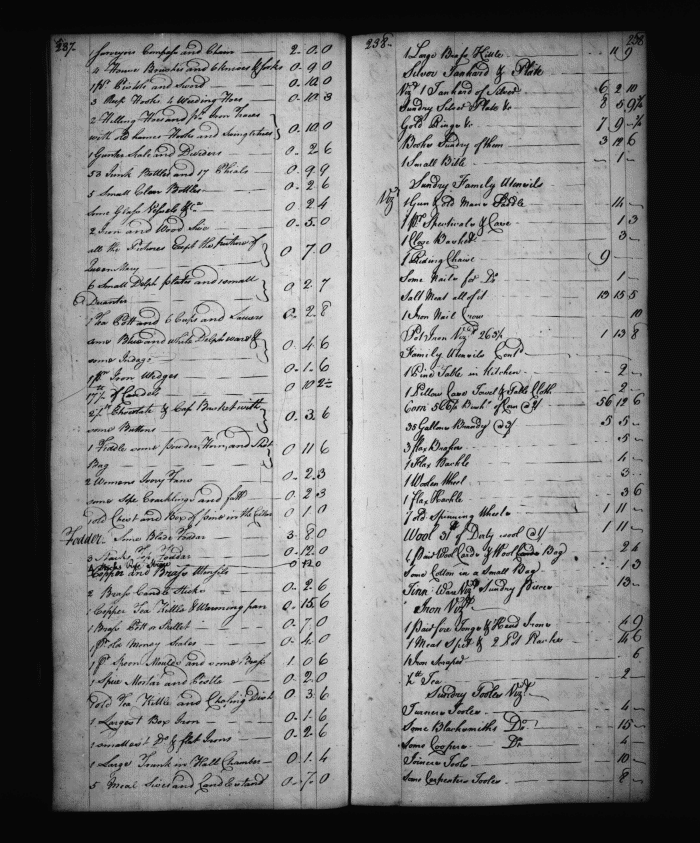 237.
1 Surveyors Compass and Chain 2.0.0
4 House Brushes and 6 knives & forks 0.9.0
1 pr Pistols and Sword 0.10.0
3 Hoes 4 Weeding Hoes 0.10.3
2 Hilling Hoes and pr Iron Traces
with old hames Hooks and Swingletrees 0.10.0
1 Gunter Scale and Dividers 0.2.6
53 Junk Bottles and 17 Phials 0.9.9
5 Small Clear Bottles 0.2.6
Some Glass Vessels &c 0.2.4
2 Iron and Wood 0.5.0
all the Pictures Except the picture of
Queen Mary 0.7.0
6 Small Delph plates and 1 small
6 0.2.7
1 Tea Pott and 6 Cups and Saucers 0.2.8
some Blue and white Delph ware &
some Indago 0.4.6
1 pr Iron Wedges 0.1.6
17 lb of Candels 0.10.2
2 lb Chocolate & Cap Basket with
some Buttons 0.3.6
1 some powder, Horn, and Shot
Bag 0.11.6
2 Womens Ivory Fans 0.2.3
some Sope Cracklings and fatt 0.2.3
1 old Chest and Box of in the Cellar 0.1.0
Fodder Some Blade Foddar 3.8.0
3 Stacks Foddar 0.12.0
Copper and Brass Utensils
2 Brass Candle Sticks 0.2.6
1 Copper Tea Kittle & Warming pan 0.15.6
1 Brass Pott or Skellet 0.7.0
1 pr old Money Scales 0.4.0
1 pr Spoon Moulds and some Brass 1.0.6
1 Spice Mortar and Pestle 0.2.0
1 old Tea Kittle and Chafing Dish 0.3.6
1 Largest Box Iron 0.1.6
1 smallest Do & flat Irons 0.2.6
1 Large Trunk in Hall Chamber 0.1.4
5 Meal Sives and Candlestand 0.7.0
238. 238
1 Large Brass Kittle 11 9
Silver Tankard & Plate
Viz 1 Tankard of Silver 6 2 10
Sundry Silver Plate &c 8 5 9½
Gold Rings &c 7 9
Books Sundry of them 3 12 6
1 Small Bible 1
Sundry Family Utensils
Viz 1 Gun & old Mans Saddle 14
1 pr Spectacles & Case 1 3
1 Close Basket 3
1 Riding Chaire 9
Some Nails for Do 1
Salt Meat all of it 13 15 5
1 Iron Nail Crow 10
Pot Iron Viz 263 lb 1 13 8
Family Utensils Contd
1 Pine Table in Kitchen 2
1 Pillow Case Towel & Table Cloth 2
Corn Bush of Corn 56 12 6
35 Gallons Brandy @ 3/ 5 5
3 Flax Brakes 5
1 Flax Hackle 4
1 Woolen Wheel 3
1 Flax Hackle 3 6
7 old Spinning Wheels 1 11
Wool 31 lb of Dirty wool @ 1/ 1 11
1 pair Wool Cards & Wool Bag 2 4
Some Cotton in a Small Bag 1 3
Tinn Ware Viz Sundry Pieces 13
Iron Viz
1 pair fire Tongs & Hand Irons 4 9
1 Meat Spit & 2 Pot Racks 4 6
1 Iron 6
Tea 2
Sundry Tooles Viz
Turners Tooles 4
Some Blacksmiths Do 15
Some Coopers Do 4
Joiners Tools 10
Some Carpenters Tooles 8